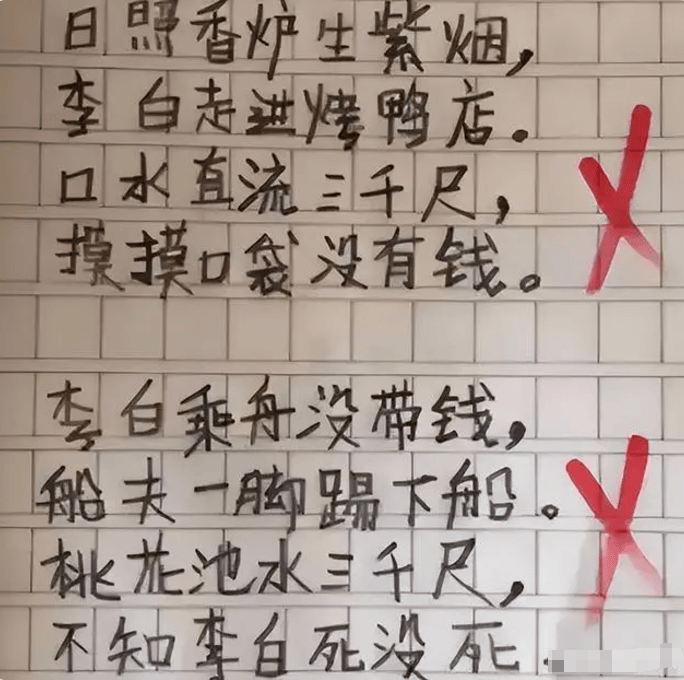 日照香炉生紫烟，
李白走进烤鸭店。
口水直流三千尺，
摸摸口袋没有钱。
李白乘舟没带钱，
船夫一脚踢下船。
桃花池水三千尺，
不知李白死没死.